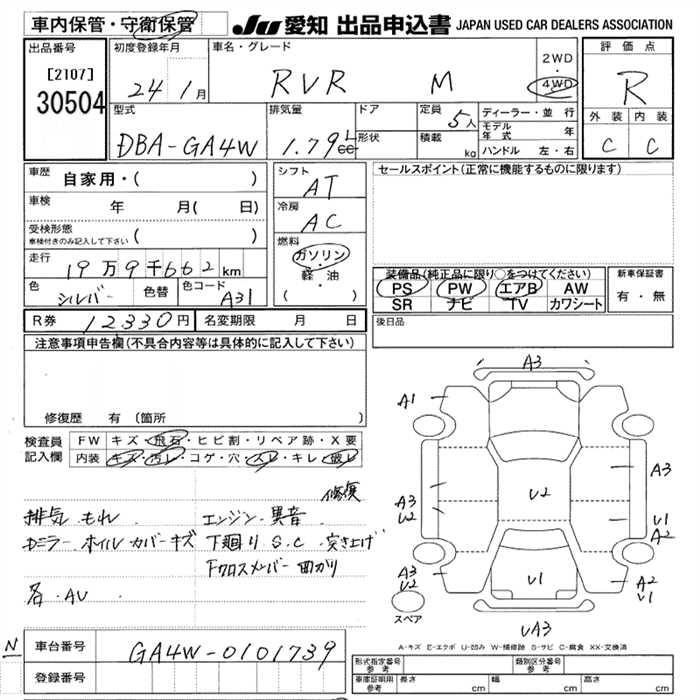 車内保管・守衛保管
JU 愛知 出品申込書 JAPAN USED CAR DEALERS ASSOCIATION
出品番号 初度登録年月 車名・グレード 2WD 評価点
[2107] 24 1月 RVR M 4WD R
30504
型式 排気量 ドア 定員 5人 ディーラー・並行 外装 内装
DBA-GA4W 1.79 L cc 形状 積載 kg モデル年式 年 C C
ハンドル 左・右
車歴 自家用・( ) シフト AT セールスポイント(正常に機能するものに限ります)
車検 年 月( 日) 冷房 AC
受検形態 ( )
車検付きのみ記入して下さい
燃料 ガソリン 軽・油 ( )
走行 19万9千662km
装備品(純正品に限り○をつけてください) 新車保証書
PS PW エアB AW 有・無
SR ナビ TV カワシート
色 シルバー 色替 色コード A31
後日品
R券 12330円 名変期限 月 日
注意事項申告欄(不具合内容等は具体的に記入して下さい)
修復歴 有 (箇所 )
検査員 FW キズ・飛石・ヒビ割・リペア跡・X要
記入欄 内装 キズ・汚レ・コゲ・穴・スレ・キレ・破レ
修復
排気もれ エンジン・異音
ドミラー ホイルカバーキズ 下廻り S.C. 突き上げ
Fクロスメンバー 曲がり
各.AU
A3
A1
A3
A3
U2
U2
U1
A2
A3
U2
U1
A2
U1
スペア
UA3
A-キズ E-エクボ U-凹み W-補修跡 S-サビ C-腐食 XX-交換済
N 車台番号 GA4W-0101739
登録番号
形式指定番号 参考 類別区分番号 参考
車庫証明用 参考 長さ cm 幅 cm 高さ cm